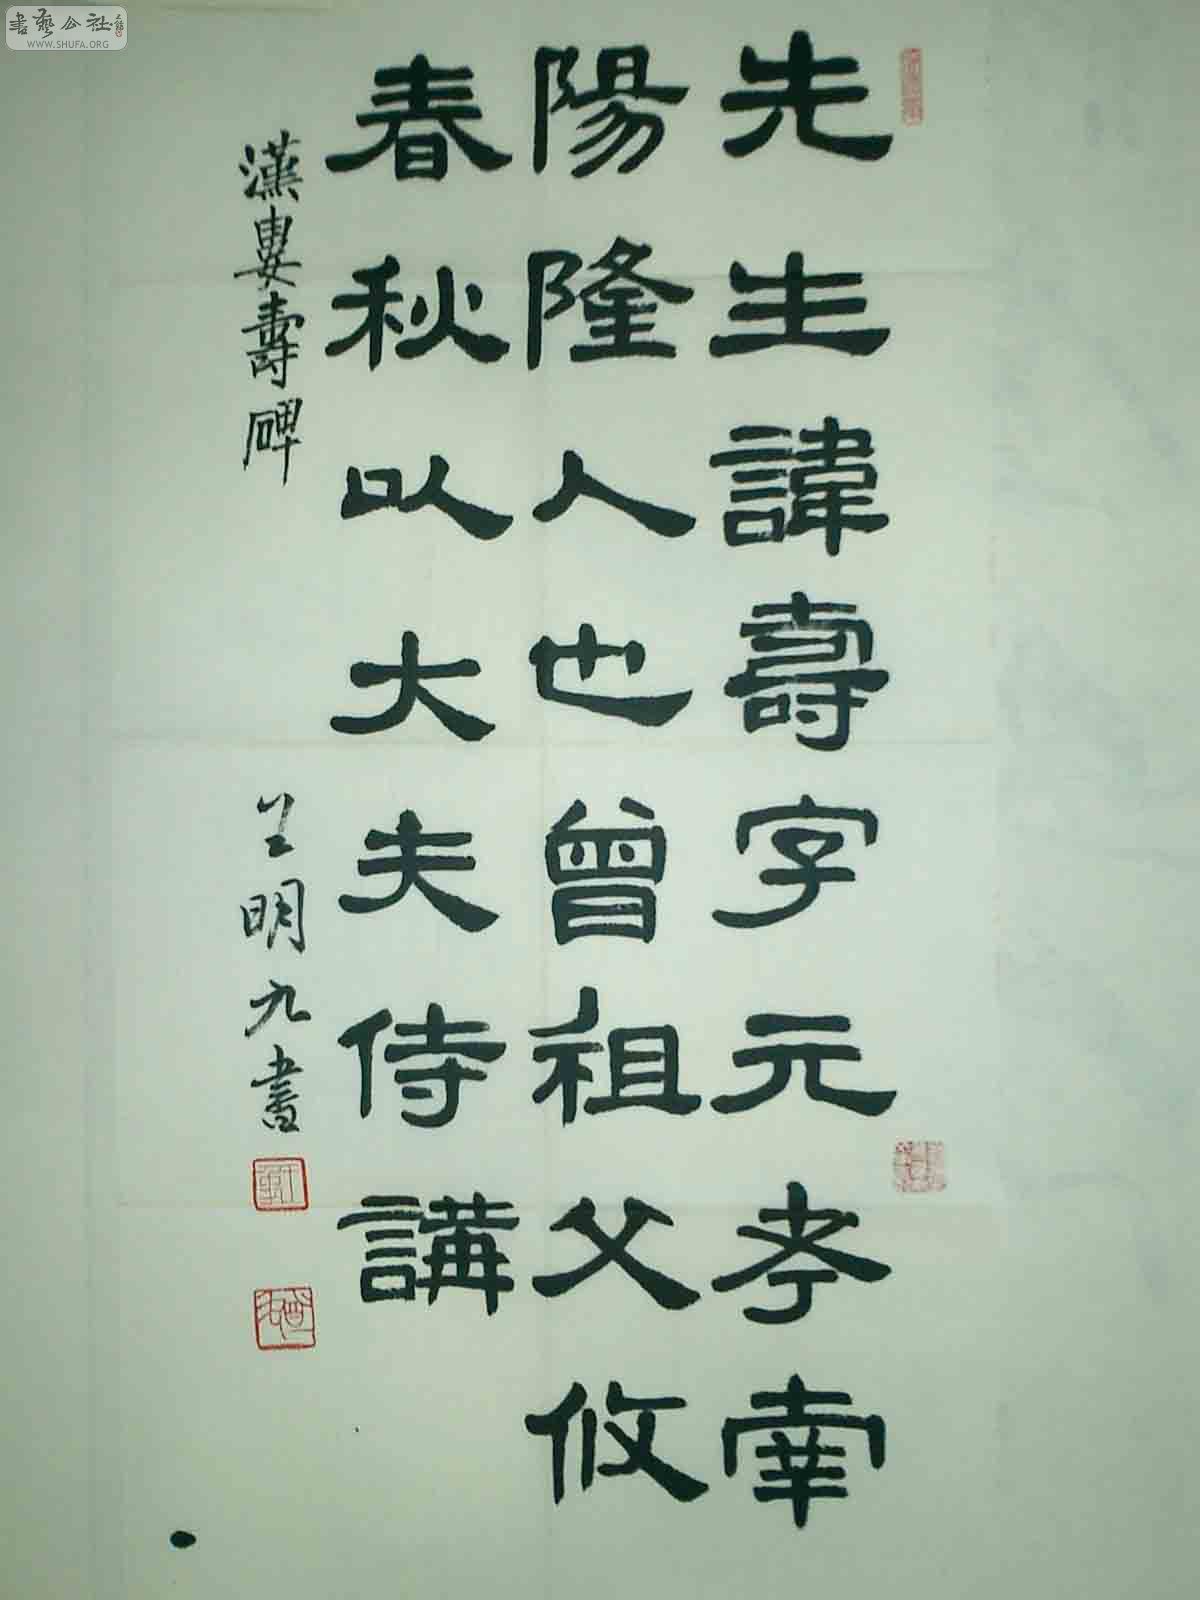 書藝公社
WWW.SHUFA.ORG
先生諱壽字元孝南
陽隆人也曾祖父攸
春秋以大夫侍講
漢婁壽碑
王明九書